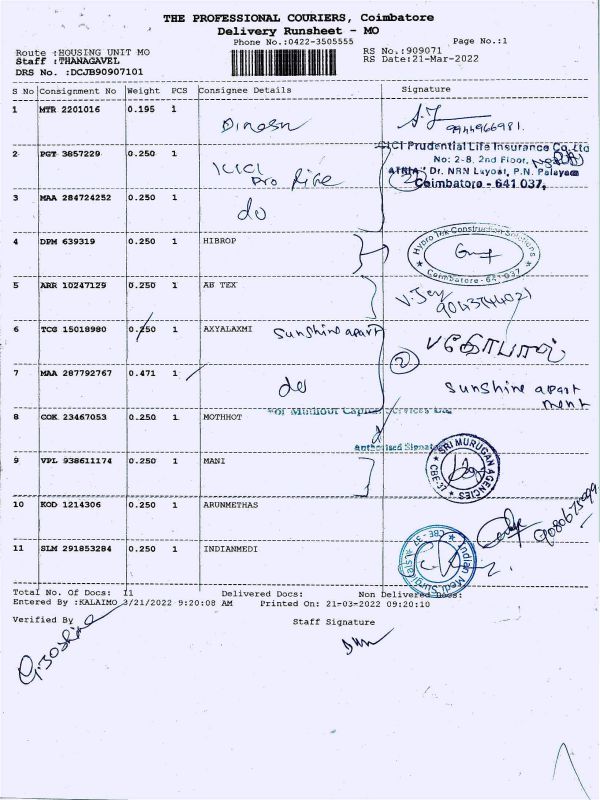 THE PROFESSIONAL COURIERS, Coimbatore
Delivery Runsheet - MO
Phone No.:0422-3505555
Page No.:1
Route :HOUSING UNIT MO
RS No.:909071
Staff :THANAGAVEL
RS Date:21-Mar-2022
DRS No. :DCJB90907101
S No Consignment No Weight PCS Consignee Details Signature
1 MTR 2201016 0.195 1 Dinesh
9944966981
2 PGT 3857229 0.250 1 ICICI Pro Life
ICICI Prudential Life Insurance Co. Ltd
No: 2-8, 2nd Floor,
ATRIA, Dr. NRN Layout, P.N. Palayam
Coimbatore - 641 037.
3 MAA 284724252 0.250 1 do
4 DPM 639319 0.250 1 HIBROP
Hypro Tek Construction Solutions
Coimbatore - 641 037
5 ARR 10247129 0.250 1 AB TEX
V. Jey
6 TCG 15018980 0.250 1 AXYALAXMI Sunshine apart
2
7 MAA 287792767 0.471 1 do
Sunshine apart
ment
8 COK 23467053 0.250 1 MOTHHOT
Authorised Signatory
9 VPL 938611174 0.250 1 MANI
SRI MURUGAN AGENCIES
CBE-37
10 KOD 1214306 0.250 1 ARUNMETHAS
11 SLM 291853284 0.250 1 INDIANMEDI
CBE - 37
Total No. Of Docs: 11 Delivered Docs: Non Delivered Docs:
Entered By :KALAIMO 3/21/2022 9:20:08 AM Printed On: 21-03-2022 09:20:10
Verified By Staff Signature